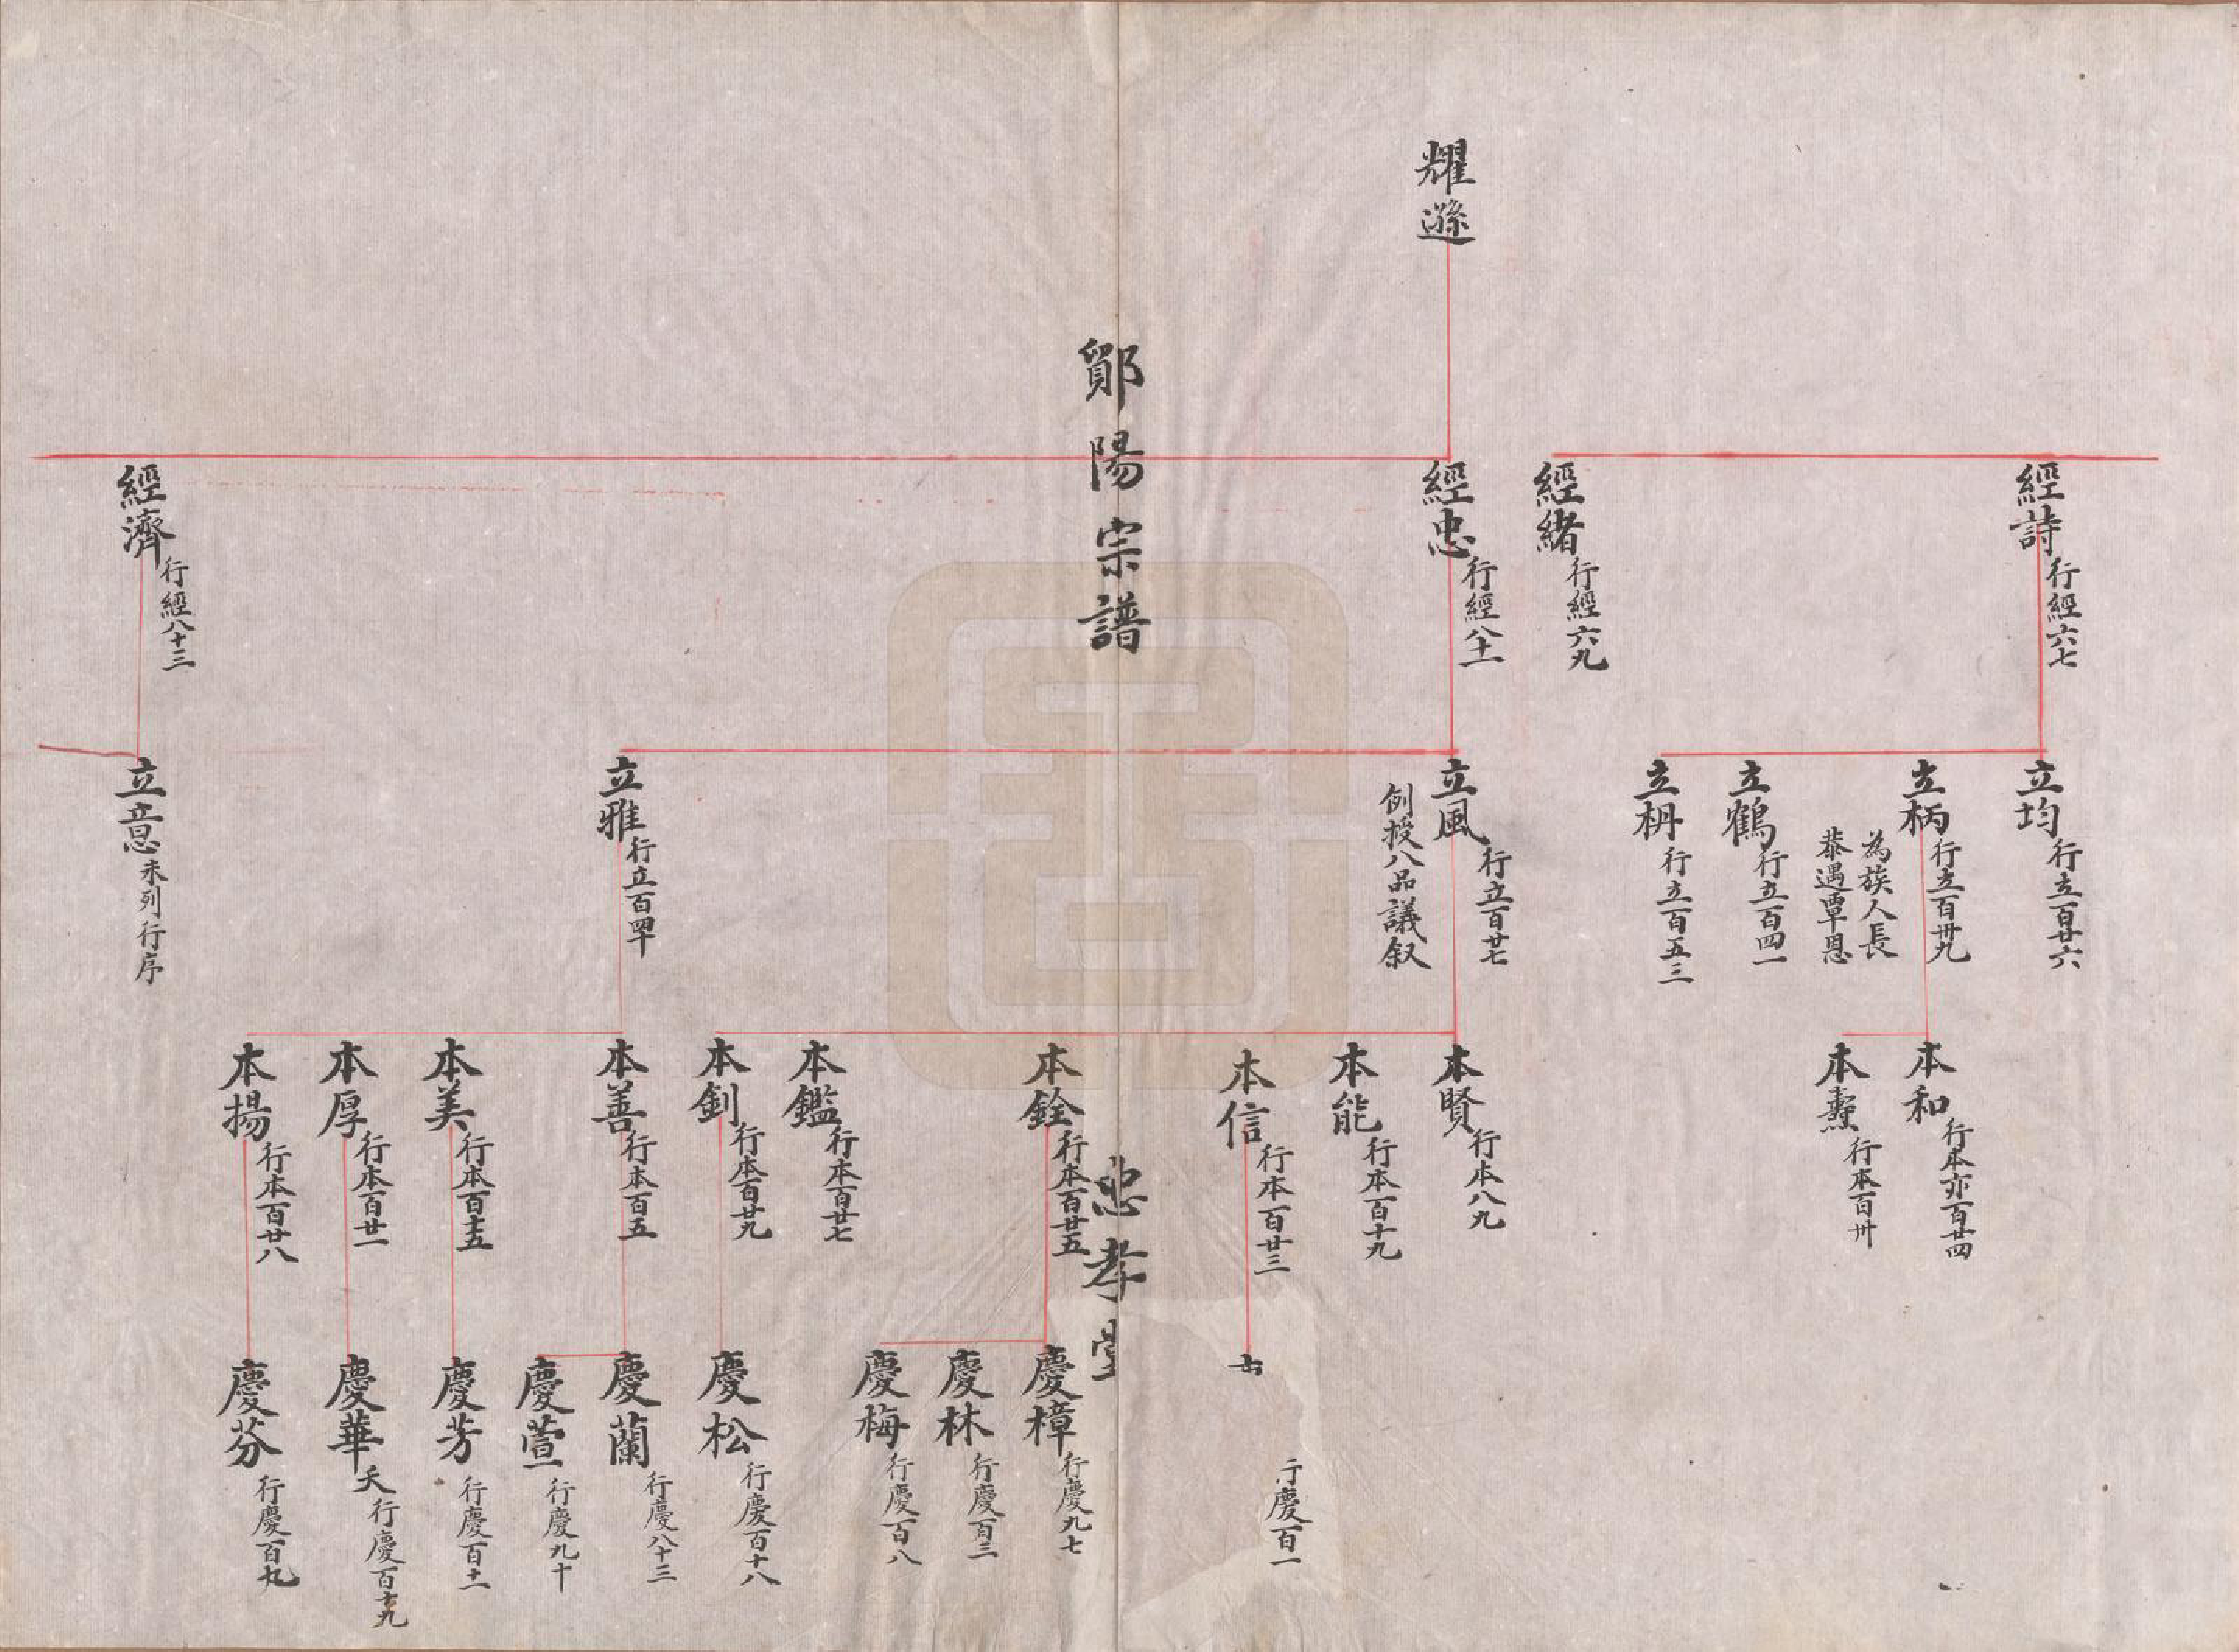 耀遜
經詩 行經六七
經緒 行經六九
經忠 行經八十一
經濟 行經八十三
立均 行立百廿六
立柄 行立百卅九
為族人長
恭遇覃恩
立鶴 行立百四一
立枬 行立百五三
立風 行立百廿七
例授八品議叙
立雅 行立百四十
立意 未列行序
本和 行本亦百廿四
本燾 行本百卅
本賢 行本八九
本能 行本百十九
本信 行本百廿三
本銓 行本百廿五
本鑑 行本百廿七
本釗 行本百廿九
本善 行本百五
本美 行本百十五
本厚 行本百廿一
本揚 行本百廿八
行慶百一
慶樟 行慶九七
慶林 行慶百三
慶梅 行慶百八
慶松 行慶百十八
慶蘭 行慶八十三
慶萱 行慶九十
慶芳 行慶百十一
慶華 夭 行慶百十九
慶芬 行慶百九
鄖陽宗譜
忠孝堂